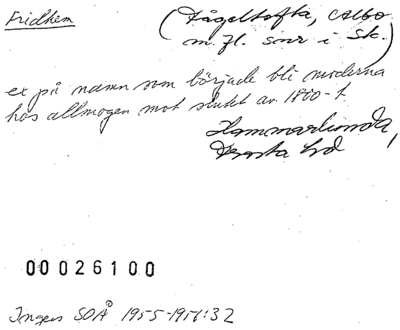 Fridhem
(Fågeltofta, Albo
m.fl. snr i Sk.)
ex på namn som började bli moderna
hos allmogen mot slutet av 1800-t.
Hammarlunda,
Frosta hd
00026100
Ingers SOÅ 1955-1957:32